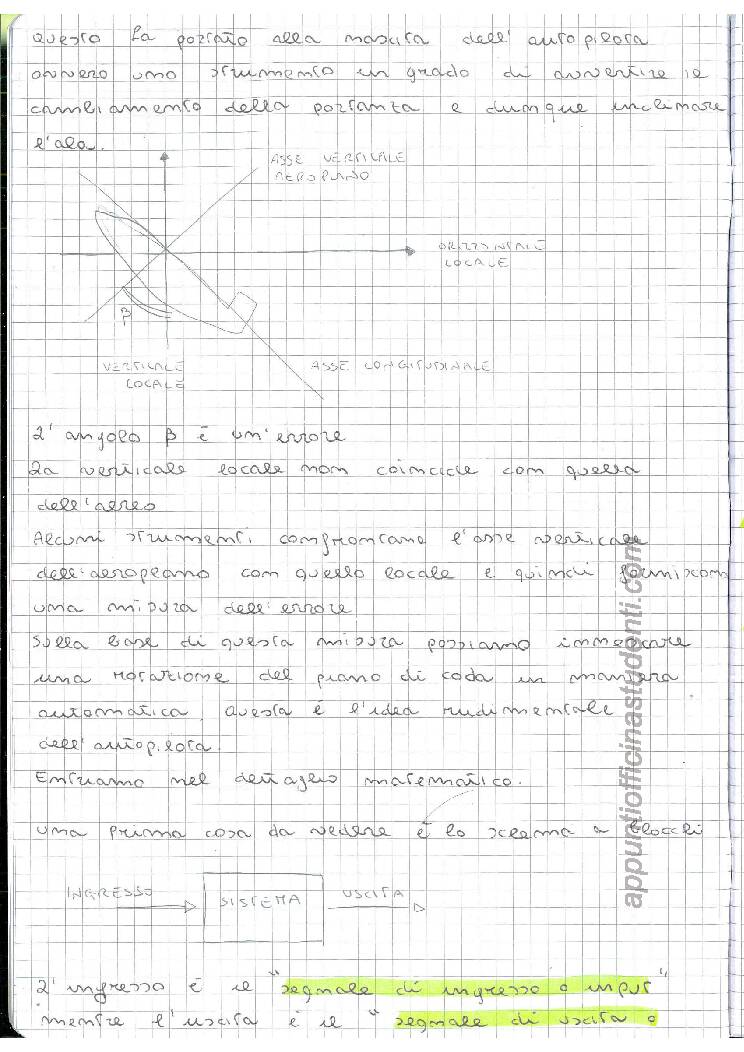 Questo ha portato alla nascita dell'autopilota
ovvero uno strumento in grado di avvertire il
cambiamento della portanza e dunque inclinare
l'ala.
ASSE VERTICALE
AEROPLANO
ORIZZONTALE
LOCALE
β
VERTICALE
LOCALE
ASSE LONGITUDINALE
L'angolo β è un'errore
La verticale locale non coincide con quella
dell'aereo
Alcuni strumenti confrontano l'asse verticale
dell'aeroplano con quello locale e quindi forniscono
una misura dell'errore
Sulla base di questa misura possiamo innescare
una rotazione del piano di coda in maniera
automatica. Questa è l'idea rudimentale
dell'autopilota.
Entriamo nel dettaglio matematico.
una prima cosa da vedere è lo schema a blocchi
INGRESSO
SISTEMA
USCITA
L'ingresso è il "segnale di ingresso o input"
mentre l'uscita è il "segnale di uscita o
appuntiofficinastudenti.com